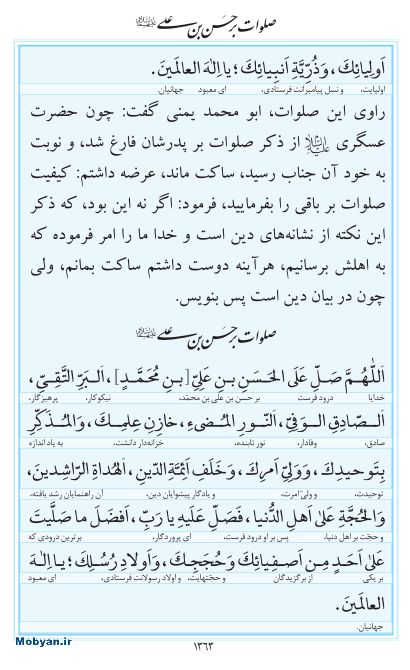 صلوات بر حسن بن علی علیه‌السلام
اَولِیائِكَ، وَذُرِّیَّةِ اَنبِیائِكَ؛ یا اِلهَ العالَمینَ.
اولیایت، و نسل پیامبرانت فرستادی، ای معبود جهانیان.
راوی این صلوات، ابو محمد یمنی گفت: چون حضرت
عسکری علیه‌السلام از ذکر صلوات بر پدرشان فارغ شد، و نوبت
به خود آن جناب رسید، ساکت ماند، عرضه داشتم: کیفیت
صلوات بر باقی را بفرمایید، فرمود: اگر نه این بود، که ذکر
این نکته از نشانه‌های دین است و خدا ما را امر فرموده که
به اهلش برسانیم، هرآینه دوست داشتم ساکت بمانم، ولی
چون در بیان دین است پس بنویس.
صلوات بر حسن بن علی علیه‌السلام
اَللّهُمَّ صَلِّ عَلَی الحَسَنِ بنِ عَلِیِّ [بنِ مُحَمَّدٍ]، اَلبَرِّ التَّقِیِّ،
خدایا درود فرست بر حسن بن علی بن محمّد، نیکوکار، پرهیزگار،
اَلصّادِقِ الوَفِیِّ، اَلنّورِ المُضیءِ، خازِنِ عِلمِكَ، وَالمُذَکِّرِ
صادق، وفادار، نور تابنده، خزانه‌دار دانشت، به یاد اندازه
بِتَوحیدِكَ، وَوَلِیِّ اَمرِكَ، وَخَلَفِ اَئِمَّةِ الدّینِ، اَلهُداةِ الرّاشِدینَ،
توحیدت، و ولیّ امرت، و یادگار پیشوایان دین، آن راهنمایان رشد یافته،
وَالحُجَّةِ عَلی اَهلِ الدُّنیا، فَصَلِّ عَلَیهِ یا رَبِّ، اَفضَلَ ما صَلَّیتَ
و حجّت بر اهل دنیا، پس بر او درود فرست، ای پروردگار، برترین درودی که
عَلی اَحَدٍ مِن اَصفِیائِكَ وَحُجَجِكَ، وَاَولادِ رُسُلِكَ؛ یا اِلهَ
بر یکی از برگزیدگان و حجّتهایت، و اولاد رسولانت فرستادی، ای معبود
العالَمینَ.
جهانیان.
Mobyan.ir
۱۳۶۳